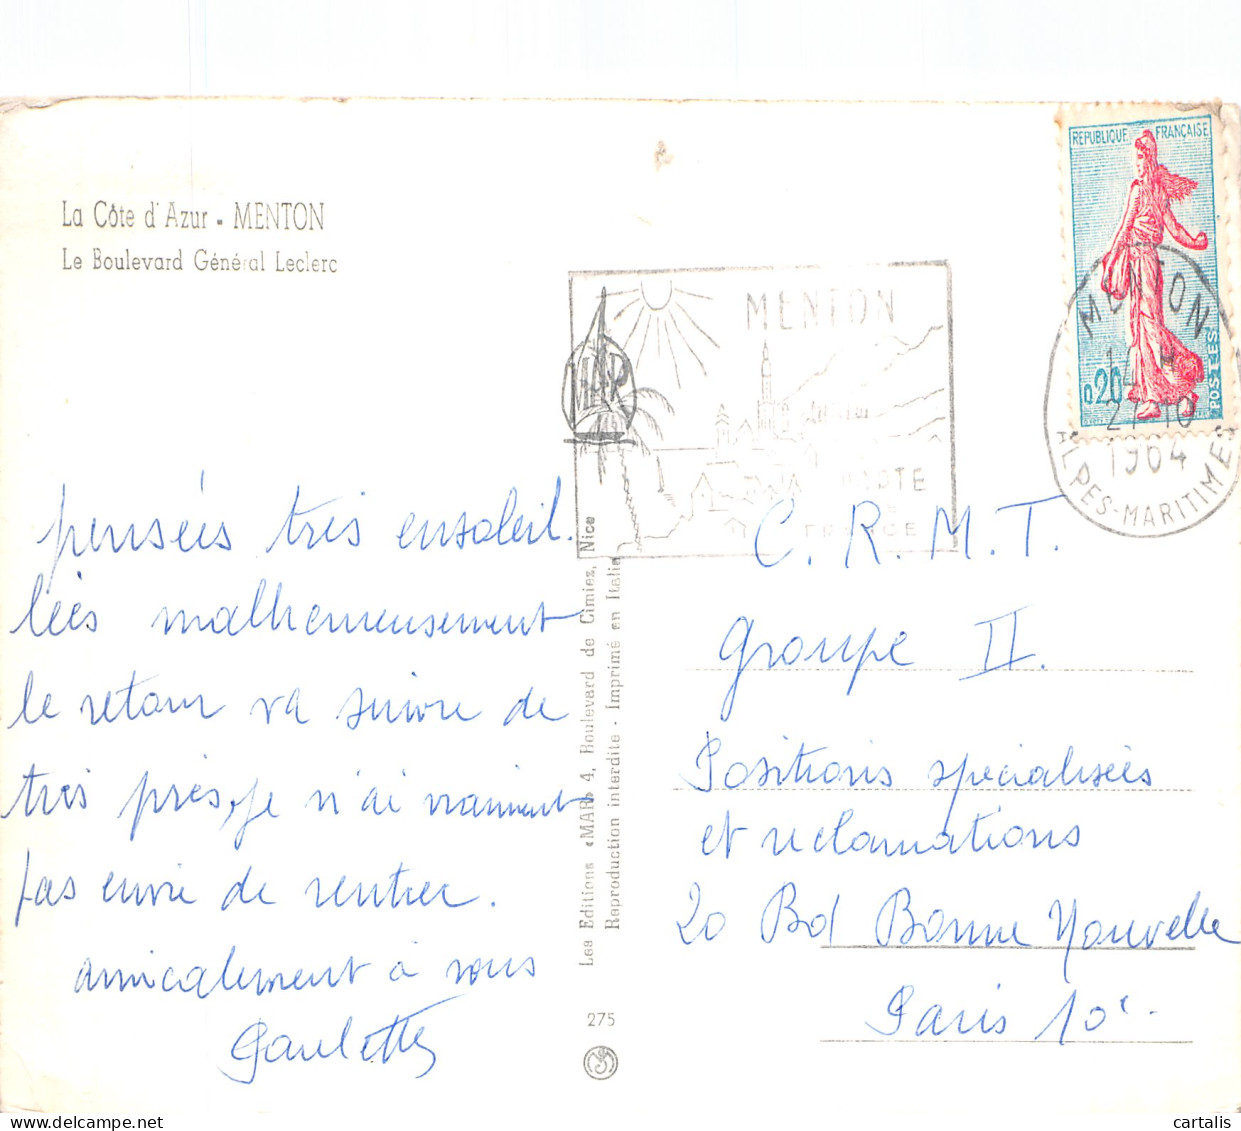 La Côte d'Azur - MENTON
Le Boulevard Général Leclerc
REPUBLIQUE FRANÇAISE
0,20
POSTES
MENTON
27-10
1964
ALPES-MARITIMES
MENTON
FRANCE
MAR
pensées très ensoleil.
lées malheureusement
le retour va suivre de
très près, je n'ai vraiment
pas envie de rentrer.
amicalement à vous
Paulette
Les Editions «MAR» 4, Boulevard de Cimiez, Nice
Reproduction interdite - Imprimé en Italie
275
C. R. M. T.
Groupe II.
Positions spécialisées
et réclamations
20 Bd Bonne Nouvelle
Paris 10e.
cartalis